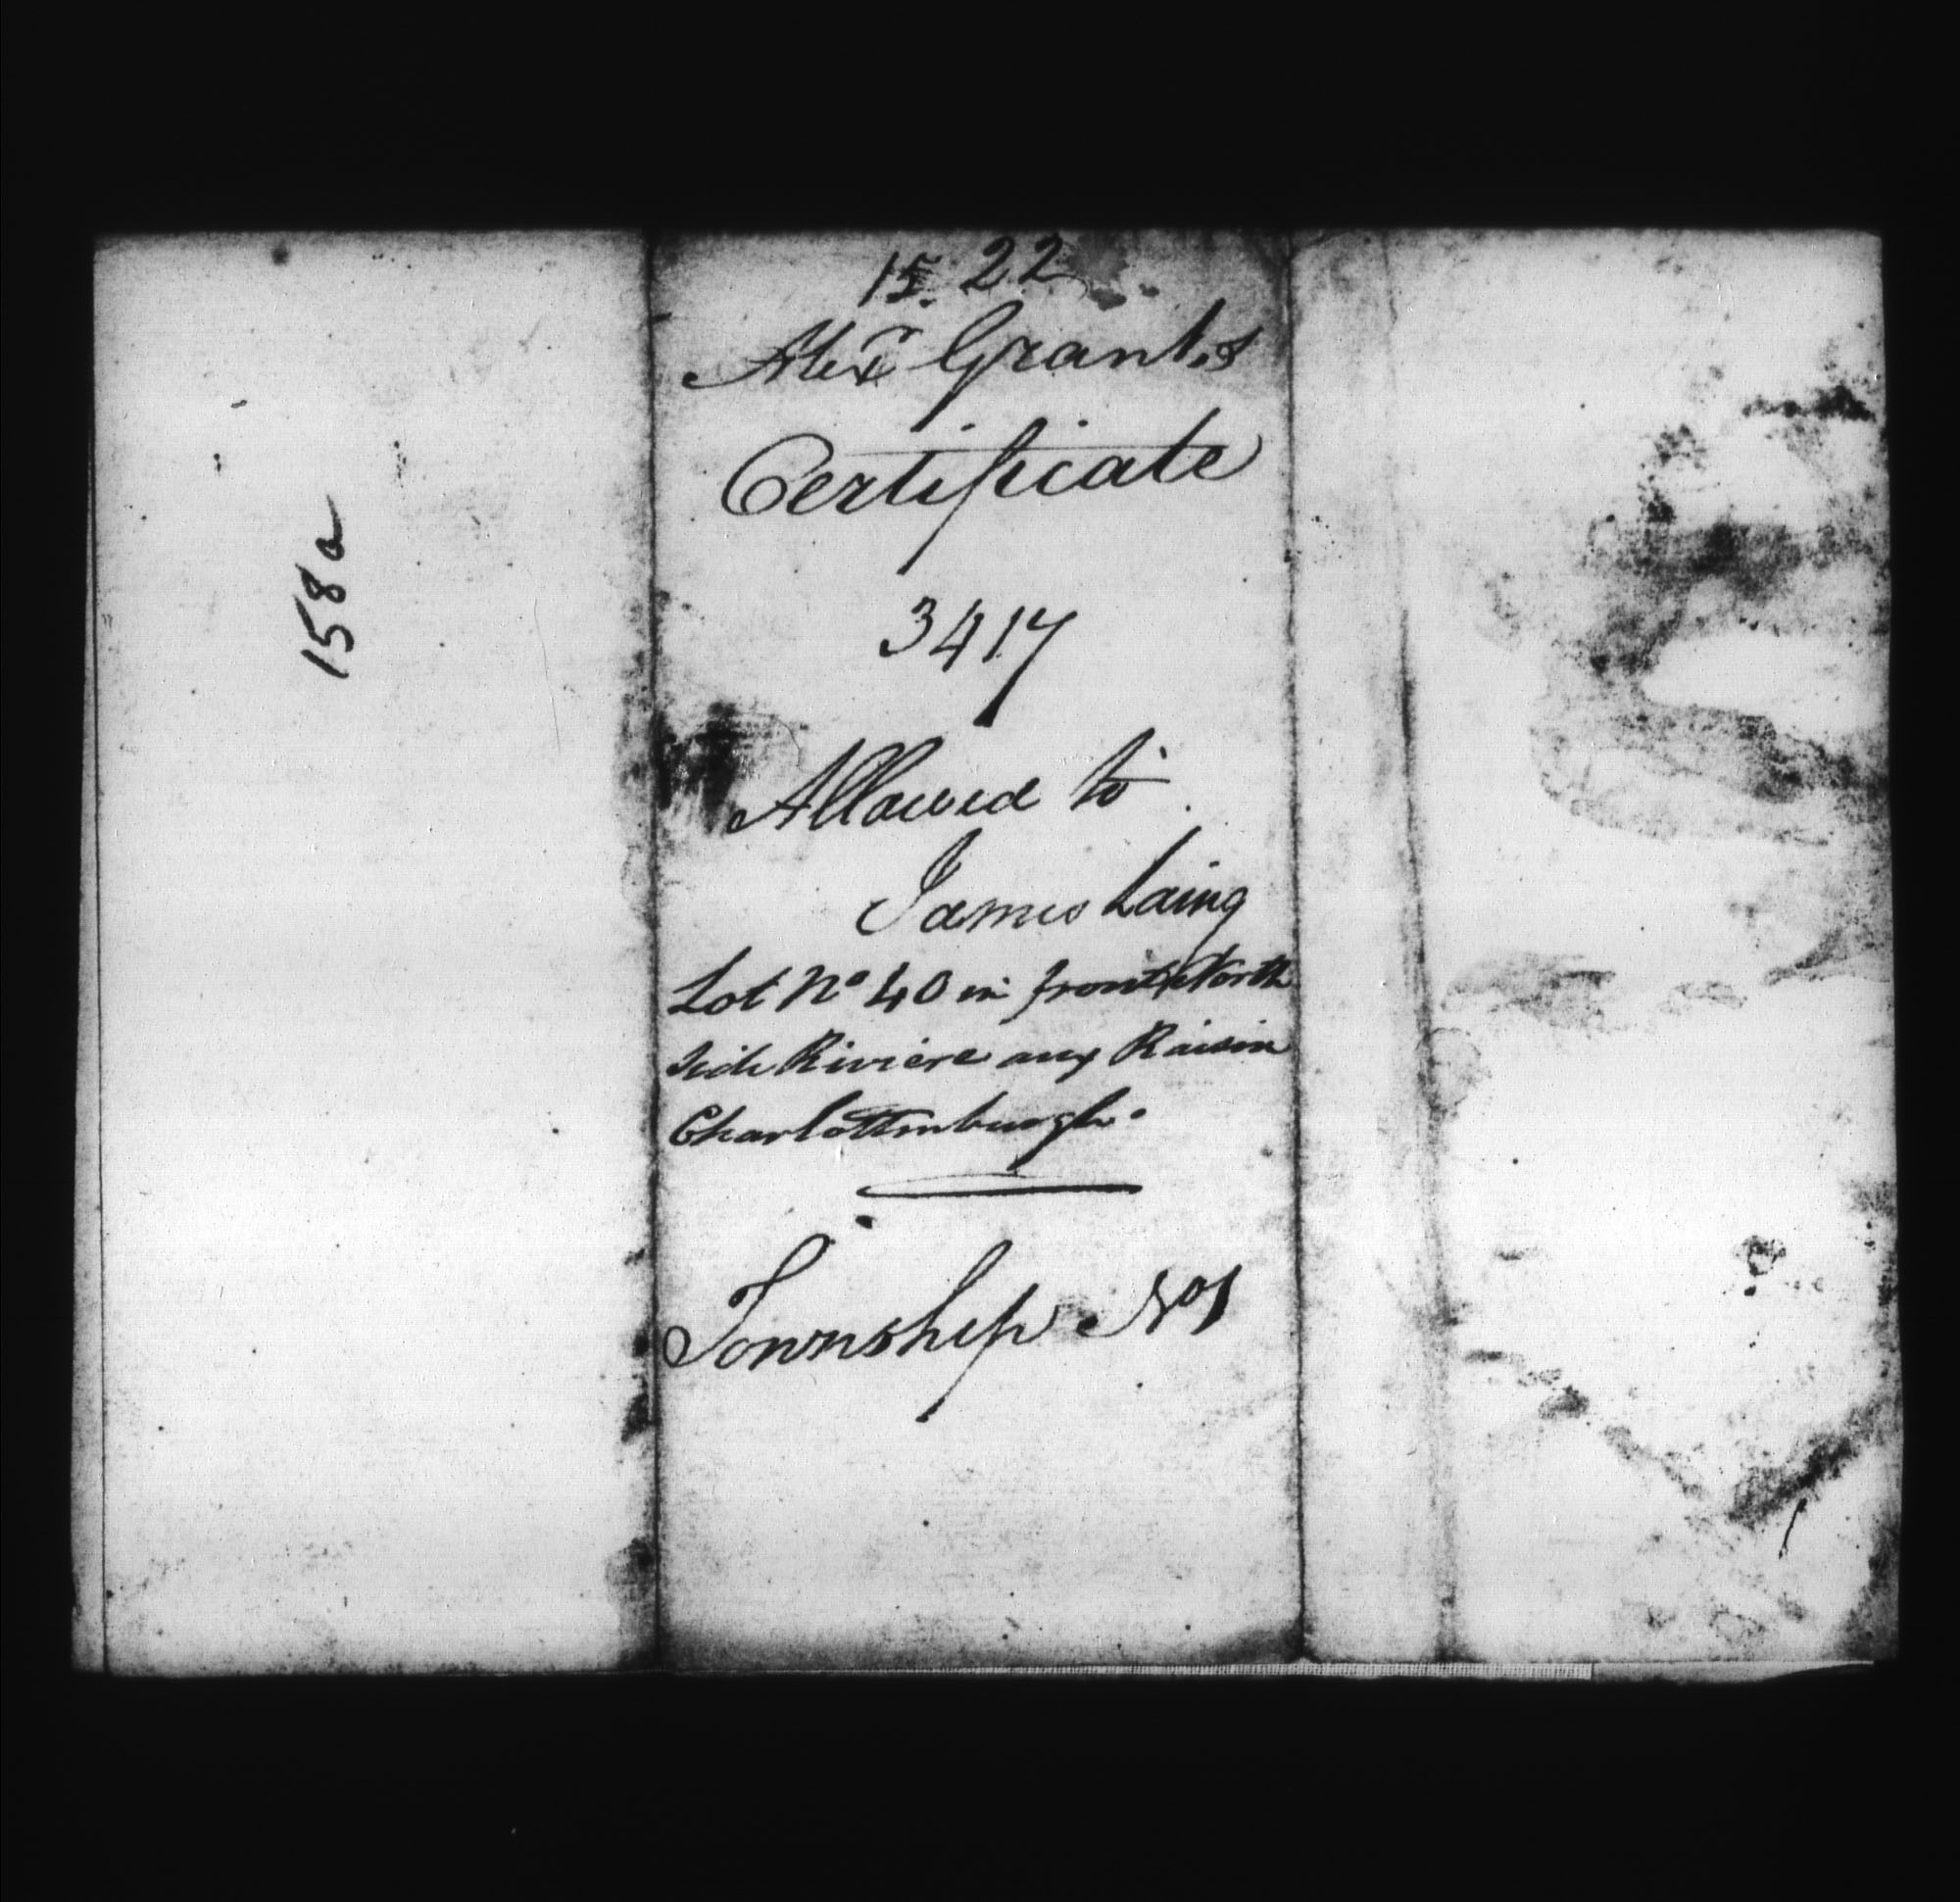 158a
15. 22
Alexr Grants
Certificate
3417
Allowed to
James Laing
Lot No 40 in front North
side Riviere aux Raisin
Charlottenburgh.
Township No 1